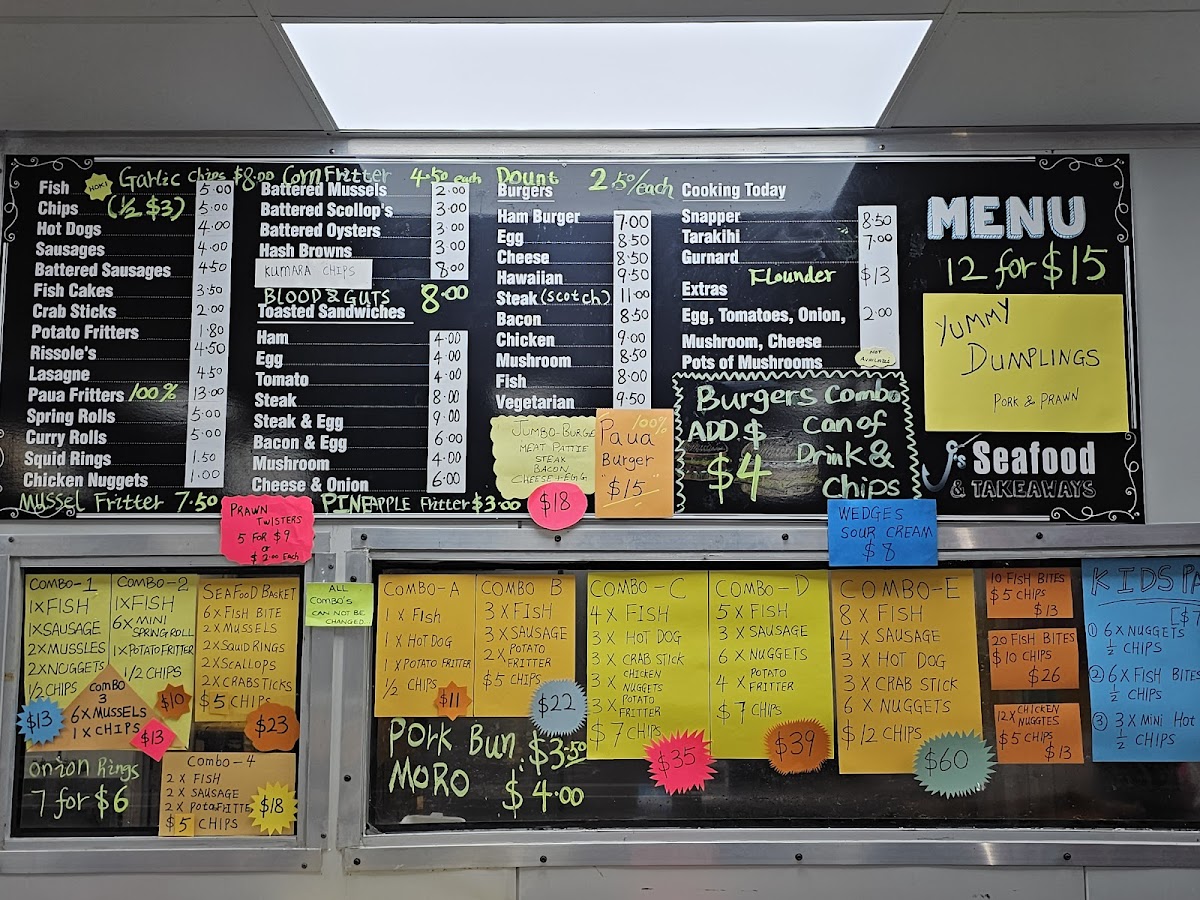 Garlic Chips $8.00 Corn Fritter 4.50 each Dount 2.50/each
Fish HOKI 5.00
Chips (1/2 $3) 5.00
Hot Dogs 4.00
Sausages 4.00
Battered Sausages 4.50
Fish Cakes 3.50
Crab Sticks 2.00
Potato Fritters 1.80
Rissole's 4.50
Lasagne 4.50
Paua Fritters 100% 13.00
Spring Rolls 5.00
Curry Rolls 5.00
Squid Rings 1.50
Chicken Nuggets 1.00
Mussel Fritter 7.50
Battered Mussels 2.00
Battered Scollop's 3.00
Battered Oysters 3.00
Hash Browns 3.00
KUMARA CHIPS 8.00
BLOOD & GUTS 8.00
Toasted Sandwiches
Ham 4.00
Egg 4.00
Tomato 4.00
Steak 8.00
Steak & Egg 9.00
Bacon & Egg 6.00
Mushroom 4.00
Cheese & Onion 6.00
PINEAPPLE Fritter $3.00
Burgers
Ham Burger 7.00
Egg 8.50
Cheese 8.50
Hawaiian 9.50
Steak (Scotch) 11.00
Bacon 8.50
Chicken 9.00
Mushroom 8.50
Fish 8.00
Vegetarian 9.50
JUMBO-BURGE
MEAT PATTIE
STEAK
BACON
CHEESE+EGG
$18
100%
Paua
Burger
$15
Cooking Today
Snapper 8.50
Tarakihi 7.00
Gurnard
Flounder $13
Extras
Egg, Tomatoes, Onion, 2.00
Mushroom, Cheese
Pots of Mushrooms NOT AVAILABLE
Burgers Combo
ADD $ Can of
$4 Drink &
Chips
MENU
12 for $15
YUMMY
DUMPLINGS
PORK & PRAWN
J's Seafood
& TAKEAWAYS
PRAWN
TWISTERS
5 FOR $9
or
$2.00 EACH
WEDGES
SOUR CREAM
$8
COMBO-1
1XFISH
1XSAUSAGE
2XMUSSLES
2XNUGGETS
1/2 CHIPS
$13
COMBO-2
1XFISH
6XMINI
SPRINGROLL
1XPOTATOFRITTER
1/2 CHIPS
$10
COMBO
3
6XMUSSELS
1XCHIPS
$13
SEAFOOD BASKET
6XFISH BITE
2XMUSSELS
2XSQUID RINGS
2XSCALLOPS
2XCRABSTICKS
$5 CHIPS
$23
Onion Rings
7 for $6
COMBO-4
2 X FISH
2 X SAUSAGE
2 X POTATOFRITTE
$5 CHIPS
$18
ALL
COMBO'S
CAN NOT BE
CHANGED.
COMBO-A
1 X Fish
1 X HOT DOG
1 X POTATO FRITTER
1/2 CHIPS
$11
COMBO B
3 X FISH
3 X SAUSAGE
2 X POTATO
FRITTER
$5 CHIPS
$22
Pork Bun $3.50
MORO $4.00
COMBO-C
4 X FISH
3 X HOT DOG
3 X CRAB STICK
3 X CHICKEN
NUGGETS
3 X POTATO
FRITTER
$7 CHIPS
$35
COMBO-D
5 X FISH
3 X SAUSAGE
6 X NUGGETS
4 X POTATO
FRITTER
$7 CHIPS
$39
COMBO-E
8 X FISH
4 X SAUSAGE
3 X HOT DOG
3 X CRAB STICK
6 X NUGGETS
$12 CHIPS
$60
10 FISH BITES
$5 CHIPS
$13
20 FISH BITES
$10 CHIPS
$26
12X CHICKEN
NUGGTES
$5 CHIPS
$13
KIDS PA
[$7
① 6 X NUGGETS
1/2 CHIPS
② 6 X FISH BITES
1/2 CHIPS
③ 3 X MINI HOT
1/2 CHIPS